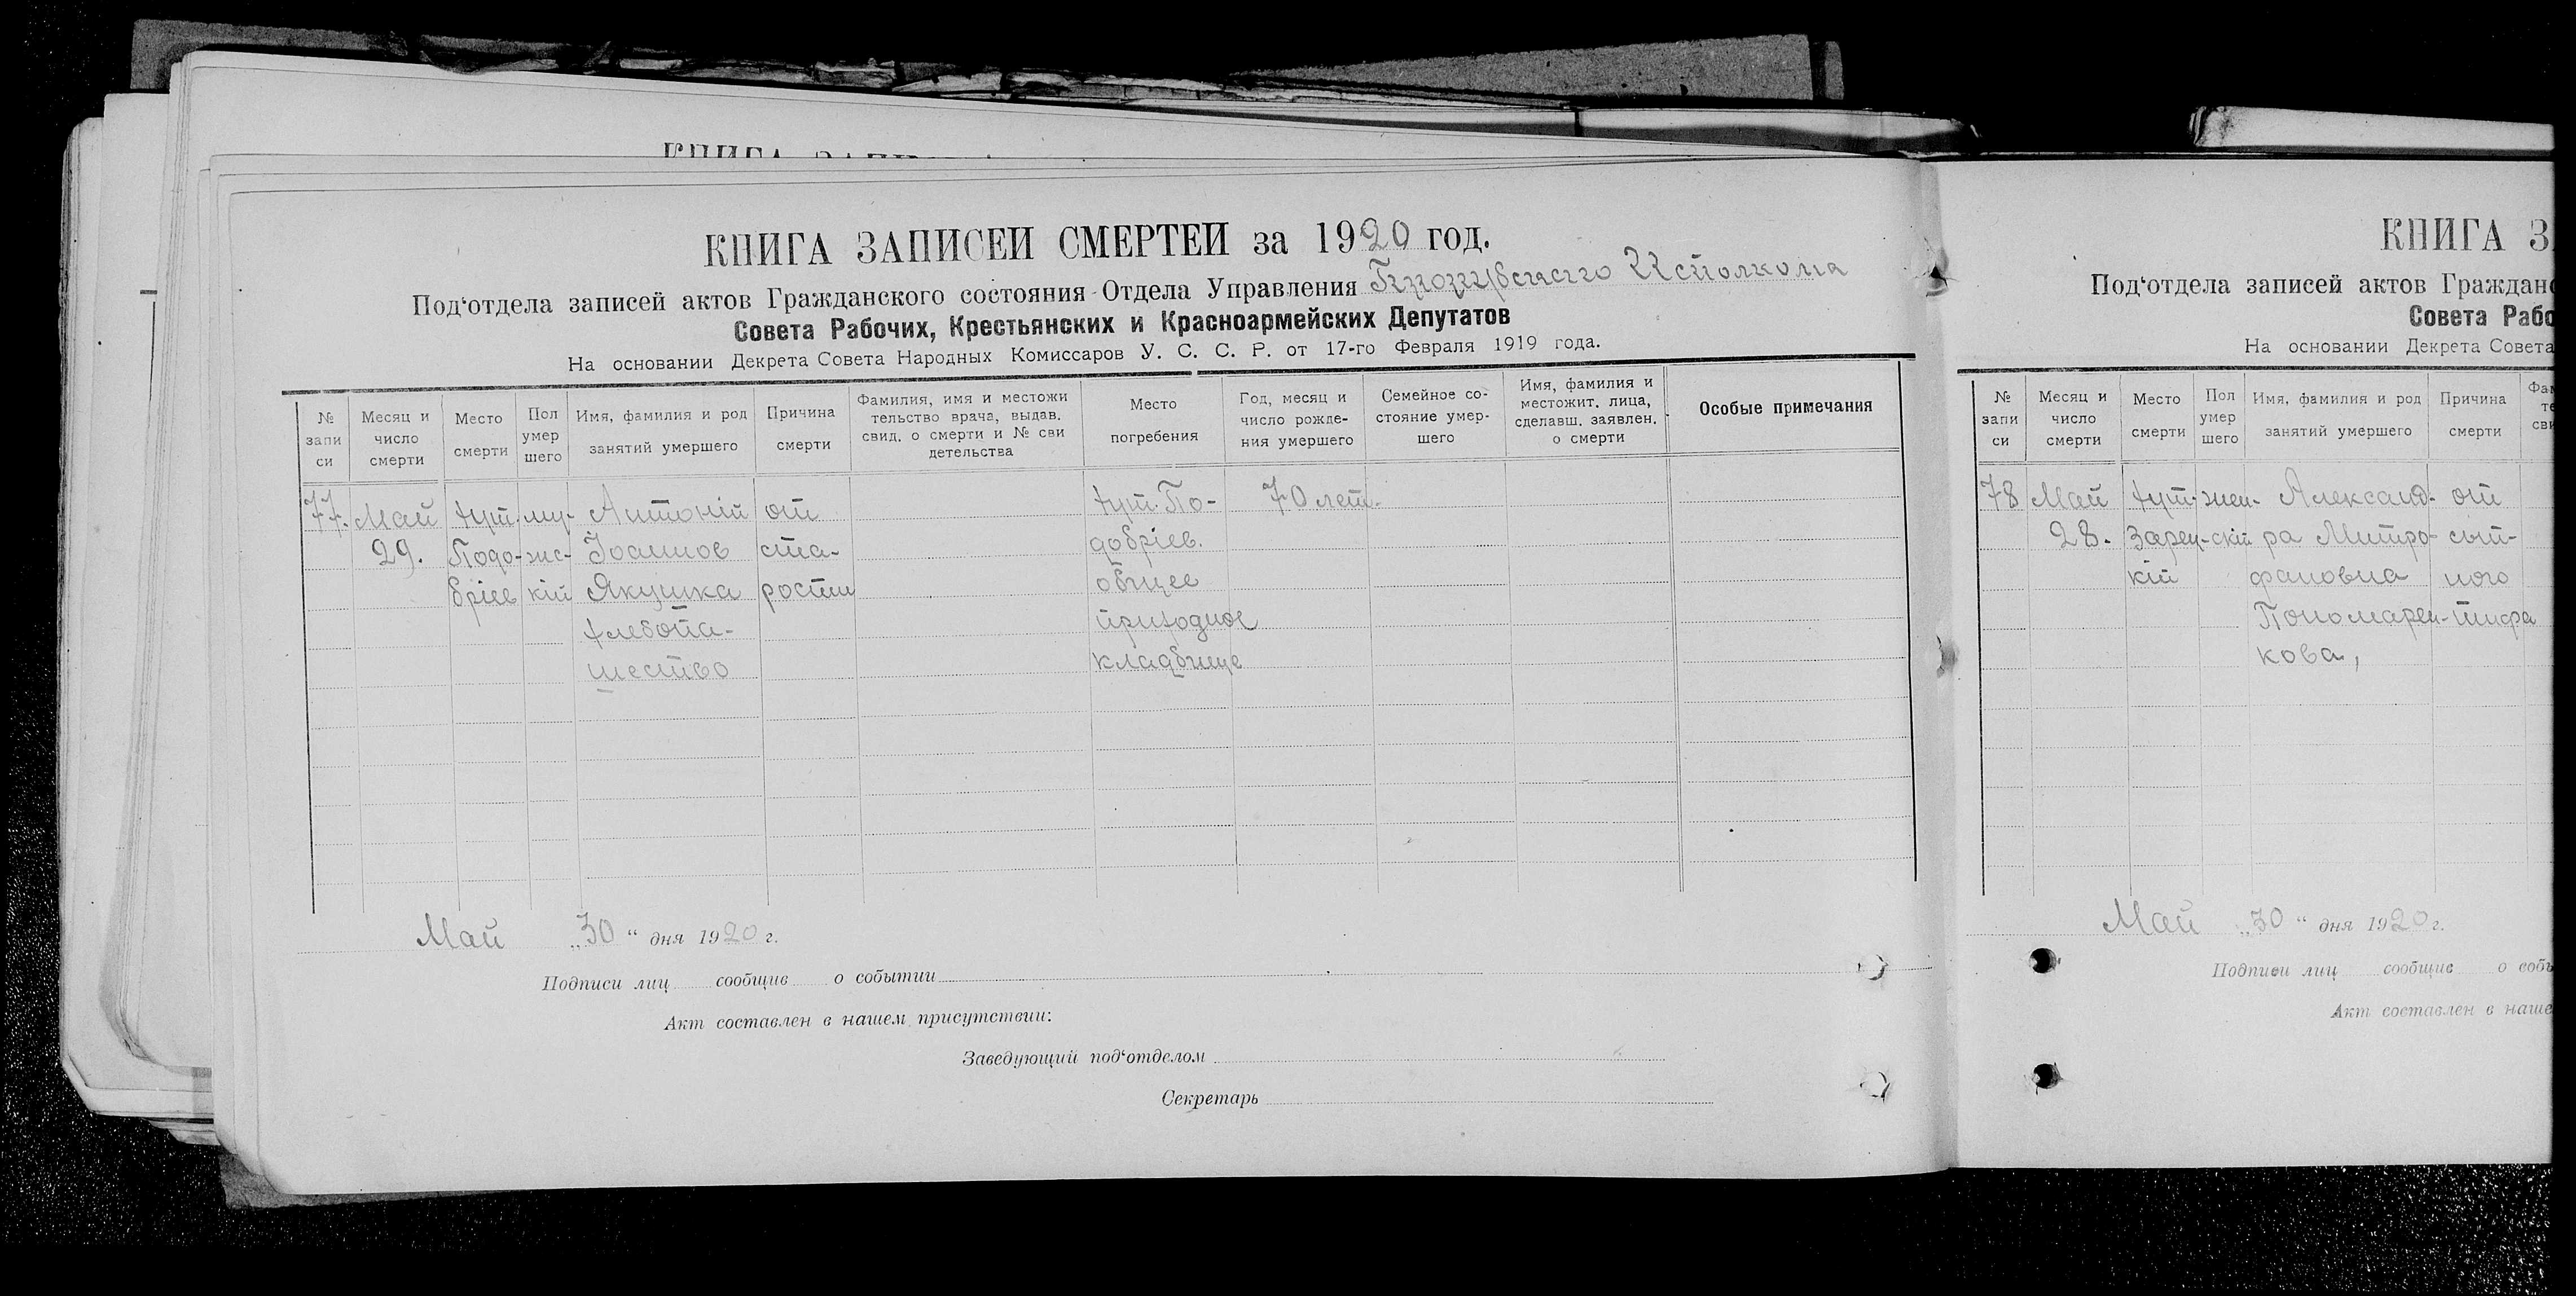 КНИГА ЗАПИСЕЙ СМЕРТЕЙ за 1920 год.
Под‘отдела записей актов Гражданского состояния Отдела Управления Исполкома
Совета Рабочих, Крестьянских и Красноармейских Депутатов
На основании Декрета Совета Народных Комиссаров У. С. С. Р. от 17-го Февраля 1919 года.
№ запи си
Месяц и число смерти
Место смерти
Пол умер шего
Имя, фамилия и род занятий умершего
Причина смерти
Фамилия, имя и местожи тельство врача, выдав. свид. о смерти и № сви детельства
Место погребения
Год, месяц и число рожде- ния умершего
Семейное со- стояние умер- шего
Имя, фамилия и местожит. лица, сделавш. заявлен. о смерти
Особые примечания
77. Май хут. му- Антоній от хут. По- 70 лет.
29. Подо- жс- Іоаннов ста- добріев.
бріев кій Якушка рости общее
хлебопа- приходное
шество кладбище
Май „30“ дня 1920 г.
Подписи лиц сообщив о событии
Акт составлен в нашем присутствии:
Заведующий под‘отделом
Секретарь
КНИГА ЗА
Под‘отдела записей актов Гражданс
Совета Рабо
На основании Декрета Совета
№ запи си
Месяц и число смерти
Место смерти
Пол умер шего
Имя, фамилия и род занятий умершего
Причина смерти
78 Май хут. жен- Александ- от
28. Зарец- скій ра Митро- сып-
кій фановна ного
Пономарен- тифа
кова,
Май „30“ дня 1920 г.
Подписи лиц сообщив о собы
Акт составлен в наше